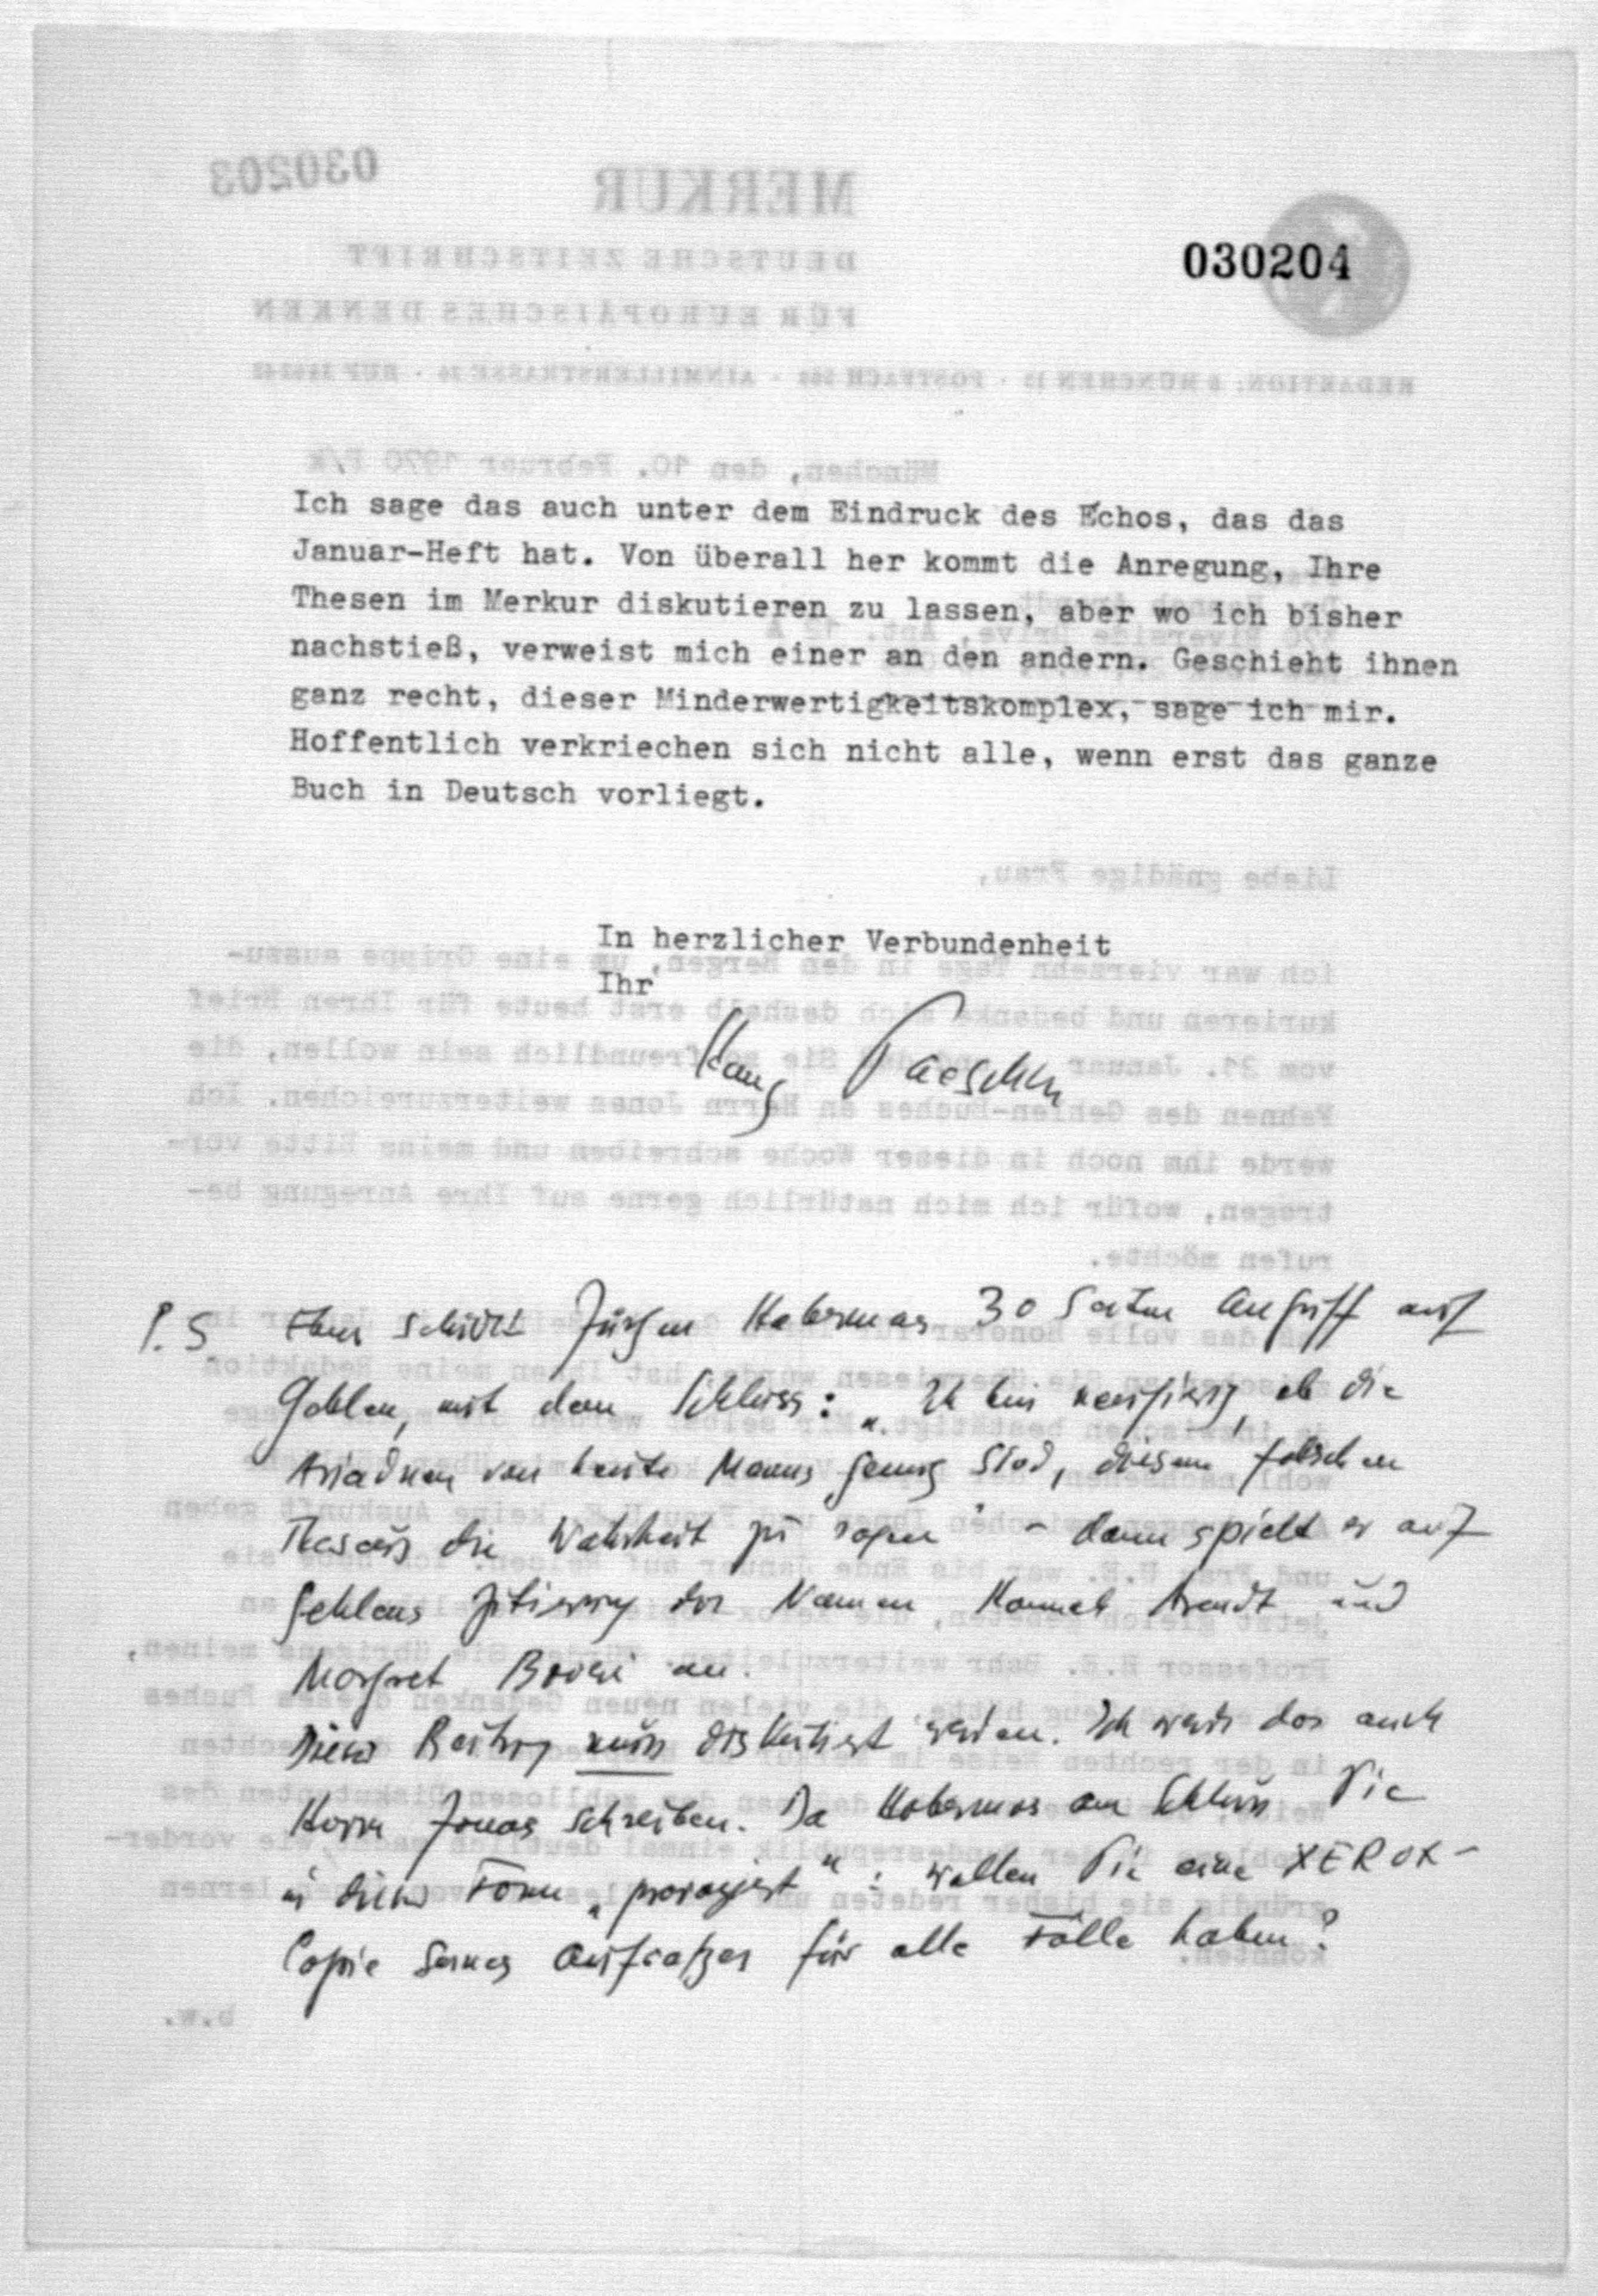 030204
Ich sage das auch unter dem Eindruck des Echos, das das
Januar-Heft hat. Von überall her kommt die Anregung, Ihre
Thesen im Merkur diskutieren zu lassen, aber wo ich bisher
nachstieß, verweist mich einer an den andern. Geschieht ihnen
ganz recht, dieser Minderwertigkeitskomplex, sage ich mir.
Hoffentlich verkriechen sich nicht alle, wenn erst das ganze
Buch in Deutsch vorliegt.
In herzlicher Verbundenheit
Ihr
Hans Paeschke
P.S. Eben schickt Jürgen Habermas 30 Seiten Angriff auf
Gehlen, mit dem Schluss: „Ich bin neugierig, ob die
Ariadnen von heute Manns genug sind, diesem falschen
Theseus die Wahrheit zu sagen" – dann spielt er auf
Gehlens Zitierung der Namen Hannah Arendt und
Margret Boveri an.
Dieser Beitrag muss diskutiert werden. Ich werde das auch
Herrn Jonas schreiben. Da Habermas am Schluss Sie
in dieser Form „provoziert": wollen Sie eine XEROX-
Copie seines Aufsatzes für alle Fälle haben?